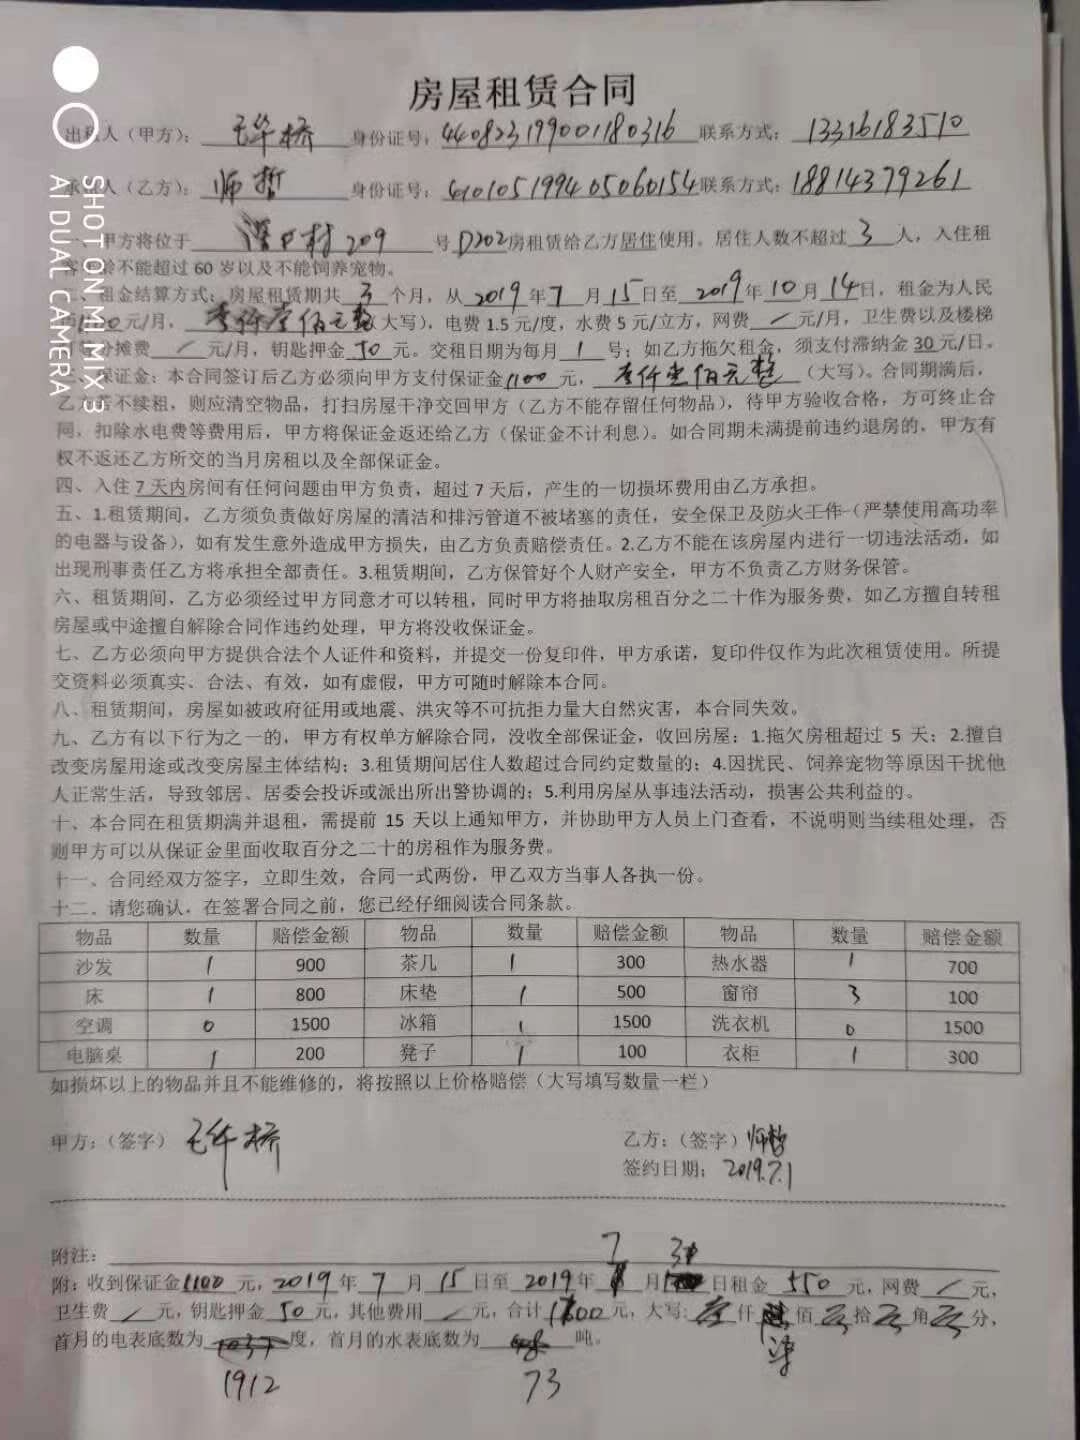 房屋租赁合同
出租人（甲方）： 身份证号：440823199001180316 联系方式：13316183510
承租人（乙方）：师哲 身份证号：610105199405060154 联系方式：18814379261
一、甲方将位于 村209 号D202房租赁给乙方居住使用。居住人数不超过 3 人，入住租
客年龄不能超过 60 岁以及不能饲养宠物。
二、租金结算方式：房屋租赁期共 3 个月，从 2019 年 7 月 15 日至 2019 年 10 月 14 日，租金为人民
币1100元/月，壹仟壹佰元整（大写），电费 1.5 元/度，水费 5 元/立方，网费 / 元/月，卫生费以及楼梯
灯分摊费 / 元/月，钥匙押金 50 元。交租日期为每月 1 号；如乙方拖欠租金，须支付滞纳金 30 元/日。
三、保证金：本合同签订后乙方必须向甲方支付保证金 1100 元，壹仟壹佰元整（大写）。合同期满后，
乙方若不续租，则应清空物品，打扫房屋干净交回甲方（乙方不能存留任何物品），待甲方验收合格，方可终止合
同，扣除水电费等费用后，甲方将保证金返还给乙方（保证金不计利息）。如合同期未满提前违约退房的，甲方有
权不返还乙方所交的当月房租以及全部保证金。
四、入住 7 天内房间有任何问题由甲方负责，超过 7 天后，产生的一切损坏费用由乙方承担。
五、1.租赁期间，乙方须负责做好房屋的清洁和排污管道不被堵塞的责任，安全保卫及防火工作（严禁使用高功率
的电器与设备），如有发生意外造成甲方损失，由乙方负责赔偿责任。2.乙方不能在该房屋内进行一切违法活动，如
出现刑事责任乙方将承担全部责任。3.租赁期间，乙方保管好个人财产安全，甲方不负责乙方财务保管。
六、租赁期间，乙方必须经过甲方同意才可以转租，同时甲方将抽取房租百分之二十作为服务费，如乙方擅自转租
房屋或中途擅自解除合同作违约处理，甲方将没收保证金。
七、乙方必须向甲方提供合法个人证件和资料，并提交一份复印件，甲方承诺，复印件仅作为此次租赁使用。所提
交资料必须真实、合法、有效，如有虚假，甲方可随时解除本合同。
八、租赁期间，房屋如被政府征用或地震、洪灾等不可抗拒力量大自然灾害，本合同失效。
九、乙方有以下行为之一的，甲方有权单方解除合同，没收全部保证金，收回房屋：1.拖欠房租超过 5 天；2.擅自
改变房屋用途或改变房屋主体结构；3.租赁期间居住人数超过合同约定数量的；4.因扰民、饲养宠物等原因干扰他
人正常生活，导致邻居、居委会投诉或派出所出警协调的；5.利用房屋从事违法活动，损害公共利益的。
十、本合同在租赁期满并退租，需提前 15 天以上通知甲方，并协助甲方人员上门查看，不说明则当续租处理，否
则甲方可以从保证金里面收取百分之二十的房租作为服务费。
十一、合同经双方签字，立即生效，合同一式两份，甲乙双方当事人各执一份。
十二、请您确认，在签署合同之前，您已经仔细阅读合同条款。
物品 数量 赔偿金额 物品 数量 赔偿金额 物品 数量 赔偿金额
沙发 1 900 茶几 1 300 热水器 1 700
床 1 800 床垫 1 500 窗帘 3 100
空调 0 1500 冰箱 1 1500 洗衣机 0 1500
电脑桌 1 200 凳子 1 100 衣柜 1 300
如损坏以上的物品并且不能维修的，将按照以上价格赔偿（大写填写数量一栏）
甲方：（签字） 乙方：（签字）师哲
签约日期：2019.7.1
附注：
7 31
附：收到保证金1100 元，2019 年 7 月 15 日至 2019年 月 日租金 550 元，网费 / 元，
卫生费 / 元，钥匙押金 50 元，其他费用 / 元，合计1700元，大写：壹仟 佰 零 拾 零 角 零 分，
柒
首月的电表底数为 度，首月的水表底数为 吨。
1912 73
SHOT ON MI MIX 3
AI DUAL CAMERA